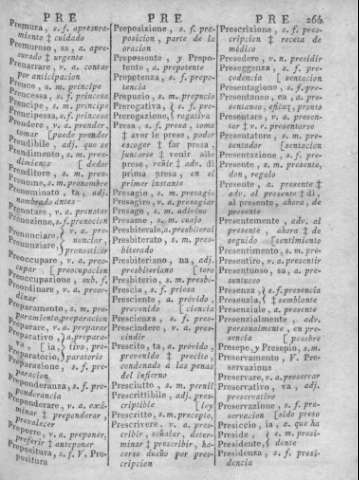 P R E
Premura, s. f. apresura-
miento ‡ cuidado
Premuroso, sa, a. apre-
surado ‡ urgente
Prenarrare, v. a. contar
por anticipacion
Prence, s. m. principe
Principe, s. m. principe
Principessa, s. f. princesa
Prendere, v. a. prender,
tomar [puede prender
Prendibile, adj. que se
Prendimento, s. m. pren-
dimiento
Prenditore, s. m. pren-
Prenome, s. m. pronombre
Prenominato, ta, adj.
nombrado antes
Prenotare, v. a. prenotar
Prenozione, s. f. prenocion
Prenunciare,
Prenunziare,
v. a. pre-
nunciar,
pronosticar
Preoccupare, v. a. preo-
cupar [preocupacion
Preoccupazione, sub. f.
Preordinare, v. a. preor-
dinar
Preparamento, s. m. pre-
paramiento, preparacion
Preparare, v. a. preparar
Preparativo,
Preparatorio,
a. prepara-
tivo, pre-
paratorio
Preparazione, s. f. pre-
paracion
Preponderanza, s. f. pre-
ponderancia
Preponderare, v. a. exâ-
minar ‡ preponderar,
prevalecer
Preporre, v. a. preponer,
preferir ‡ anteponer
Prepositura, s. f. V. Pro-
positura
P R E
Preposizione, s. f. pre-
posicion, parte de la
oracion
Prepossente, y Prepo-
tente, a. prepotente
Prepotenza, s. f. prepo-
tencia
Prepuzio, s. m. prepucio
Prerogativa,
Prerogazione,
s. f. pre-
rogativa
Presa, s. f. presa, toma
‡ aver le prese, poder
escoger ‡ far presa,
juntarse ‡ venir alle
prese, reñir ‡ adv. di
prima presa, en el
primer instante
Presagio, s. m. presagio
Presagire, v. a. presagiar
Presago, s. m. adivino
Presame, s. m. cuajo
Presbiterale, a. presbiteral
Presbiterato, s. m. pres-
biterado
Presbiteriano, na, adj.
presbiteriano [toro
Presbiterio, s. m. presbi-
Prescia, s. f. priesa
Presciente, a. próvido,
prevenido [ciencia
Prescienza, s. f. pres-
Prescindere, v. a. pres-
cindir
Prescito, ta, a. próvido,
prevenido ‡ precito,
condenado á las penas
del infierno
Presciutto, s. m. pernil
Prescrittibile, adj. pres-
criptible [ley
Prescritto, s. m. precepto,
Prescrivere, v. a. pres-
cribir, señalar, deter-
minar ‡ prescribir, ha-
cerse dueño por pres-
cripcion
P R E 266
Prescrizione, s. f. pres-
cripcion ‡ receta de
médico
Presedere, v. n. presidir
Preseggenza, s. f. pre-
cedencia [sentacion
Presentagione, s. f. pre-
Presentaneo, ea, a. pre-
sentaneo, eficaz, pronto
Presentare, v. a. presen-
tar ‡ v. r. presentarse
Presentatore, s. m. pre-
sentador [sentacion
Presentazione, s. f. pre-
Presente, s. m. presente,
don, regalo
Presente, a. presente ‡
adv. al presente ‡ di,
al presente, ahora, de
presente
Presentemente, adv. al
presente, ahora ‡ de
seguido [sentimiento
Presentimento, s. m. pre-
Presentire, v. a. presentir
Presentuoso, sa, a. pre-
sentuoso
Presenza,
Presenzia,
s. f. presencia
‡ semblante
Presenziale, a. presente
Presenzialmente, adv.
personalmente, en pre-
sencia [pesebre
Presepe, y Presepio, s. m.
Preservamento, V. Pre-
servazione
Preservare, v. a. preservar
Preservativo, va, adj.
preservativo
Preservazione, s. f. pre-
servacion [sido preso
Presiccio, ia, a. que ha
Preside, s. m. presi-
Presidente, dente
Presidenza, s. f. presi-
dencia